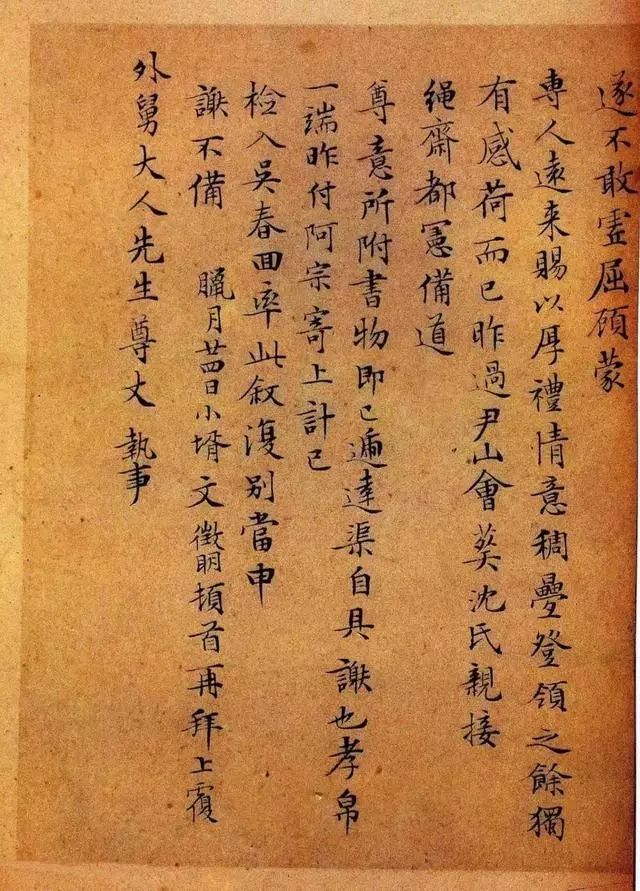 遂不敢虚屈顾蒙
専人遠来賜以厚禮情意稠疊登領之餘獨
有感荷而已昨過尹山會葬沈氏親接
绳齋都憲備道
尊意所附書物即已逓達渠自具謝也孝帛
一端昨付阿宗寄上計已
检入吳春回率此叙復别當申
謝不備 臘月廿四日小壻文徵明頓首再拜上覆
外舅大人先生尊丈 執事